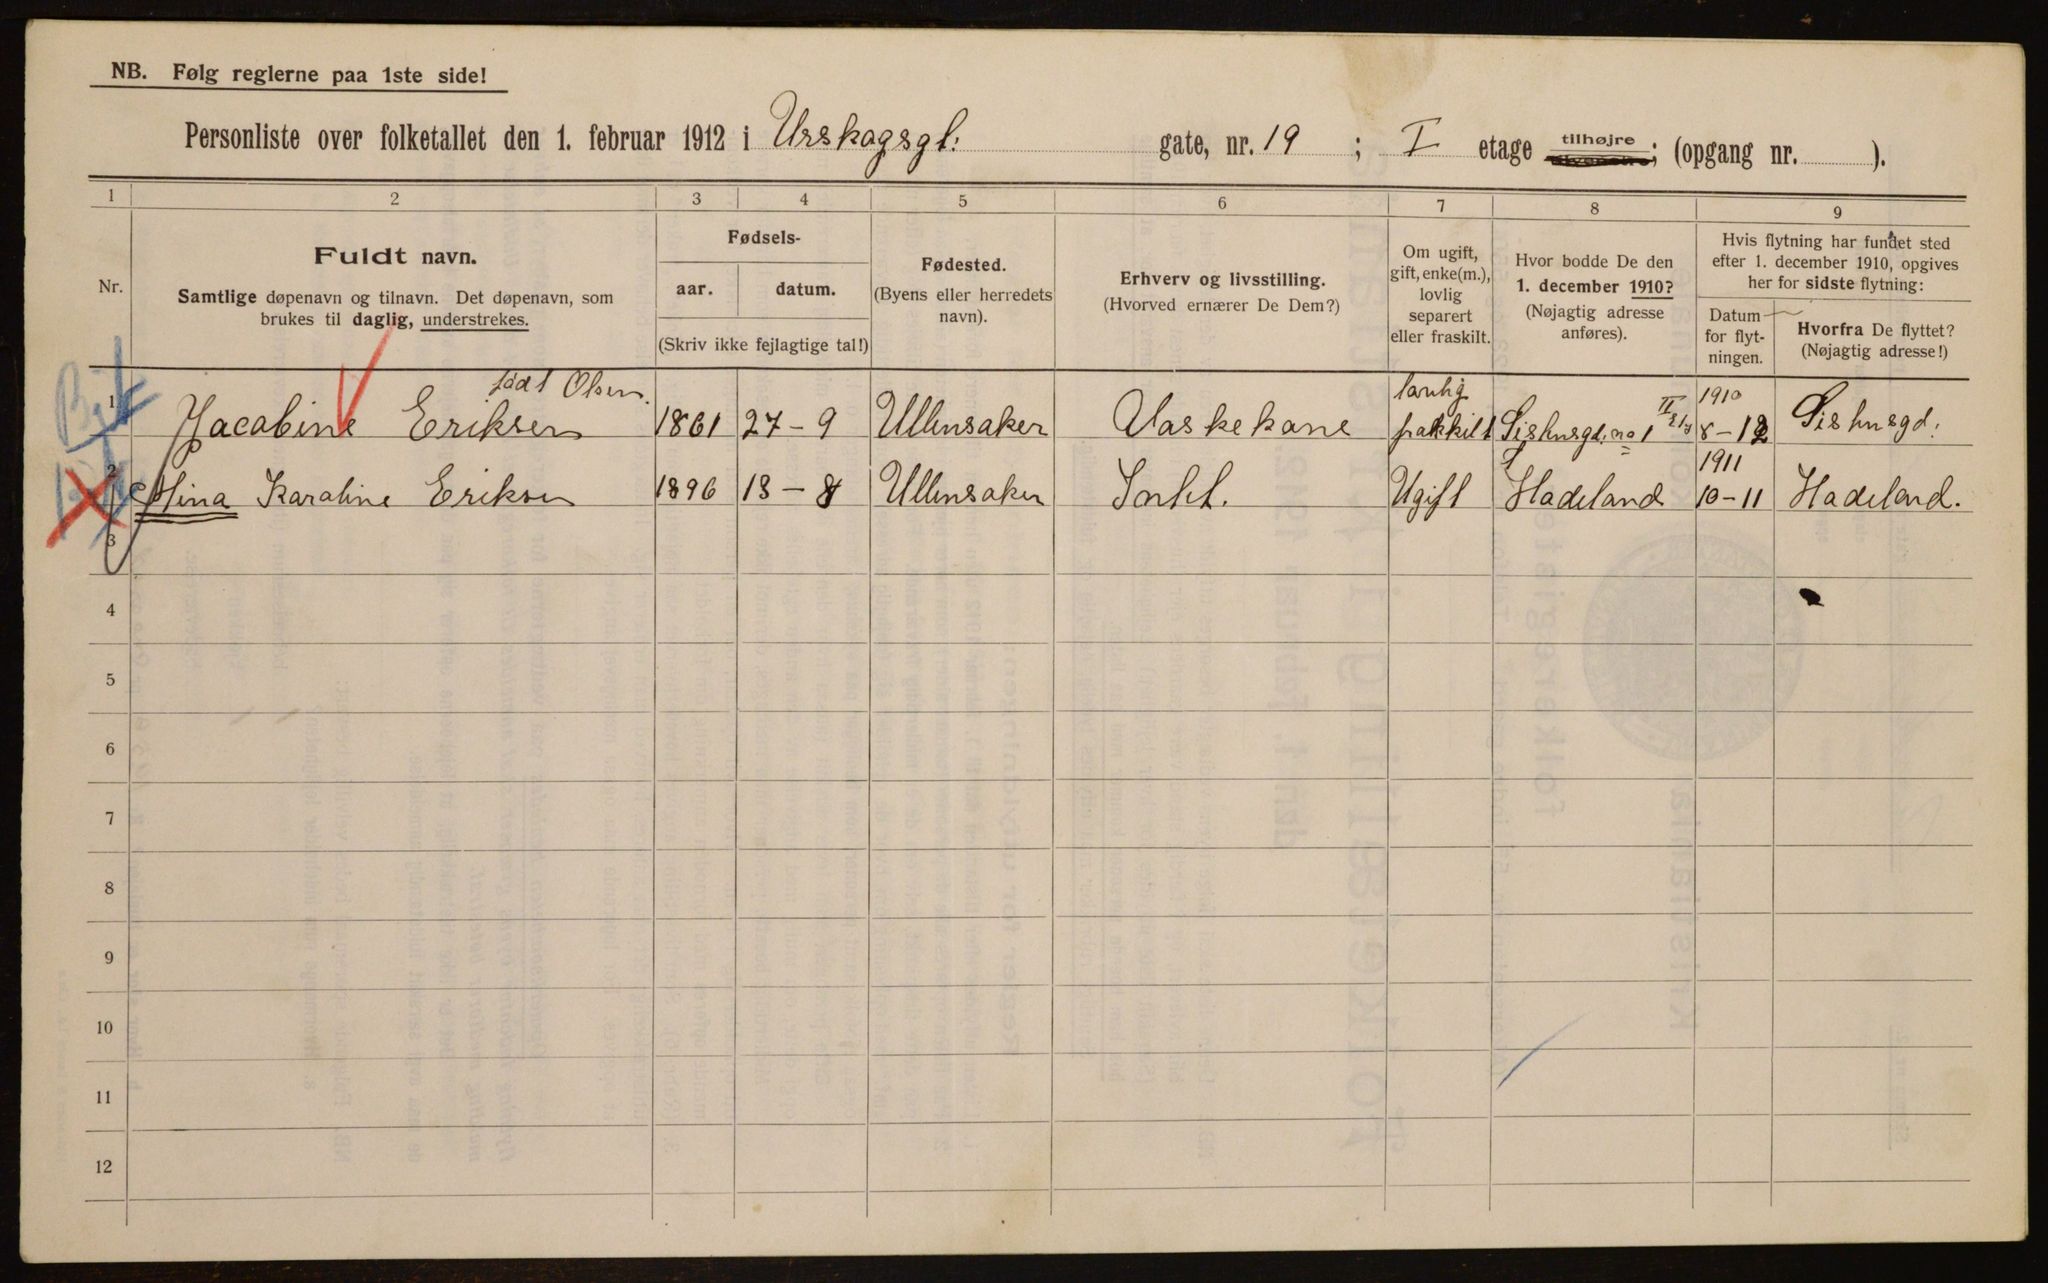 NB. Følg reglerne paa 1ste side!
Personliste over folketallet den 1. februar 1912 i Urskogsgt: gate, nr. 19 ; I etage tilhøjre ; (opgang nr. ).
1 2 3 4 5 6 7 8 9
Nr.
Fuldt navn.
Samtlige døpenavn og tilnavn. Det døpenavn, som
brukes til daglig, understrekes.
Fødsels-
aar. datum.
(Skriv ikke fejlagtige tal!)
Fødested.
(Byens eller herredets
navn).
Erhverv og livsstilling.
(Hvorved ernærer De Dem?)
Om ugift,
gift, enke(m.),
lovlig
separert
eller fraskilt.
Hvor bodde De den
1. december 1910?
(Nøjagtig adresse
anføres).
Hvis flytning har fundet sted
efter 1. december 1910, opgives
her for sidste flytning:
Datum
for flyt-
ningen.
Hvorfra De flyttet?
(Nøjagtig adresse!)
født Olsen. lovlig II 1910
1 Jacobine Eriksen 1861 27-9 Ullensaker Vaskekone frakkilt no 1 8-12
1911
2 Mina Karoline Eriksen 1896 13-8 Ullensaker Ugift Hadeland 10-11 Hadeland.
3
4
5
6
7
8
9
10
11
12